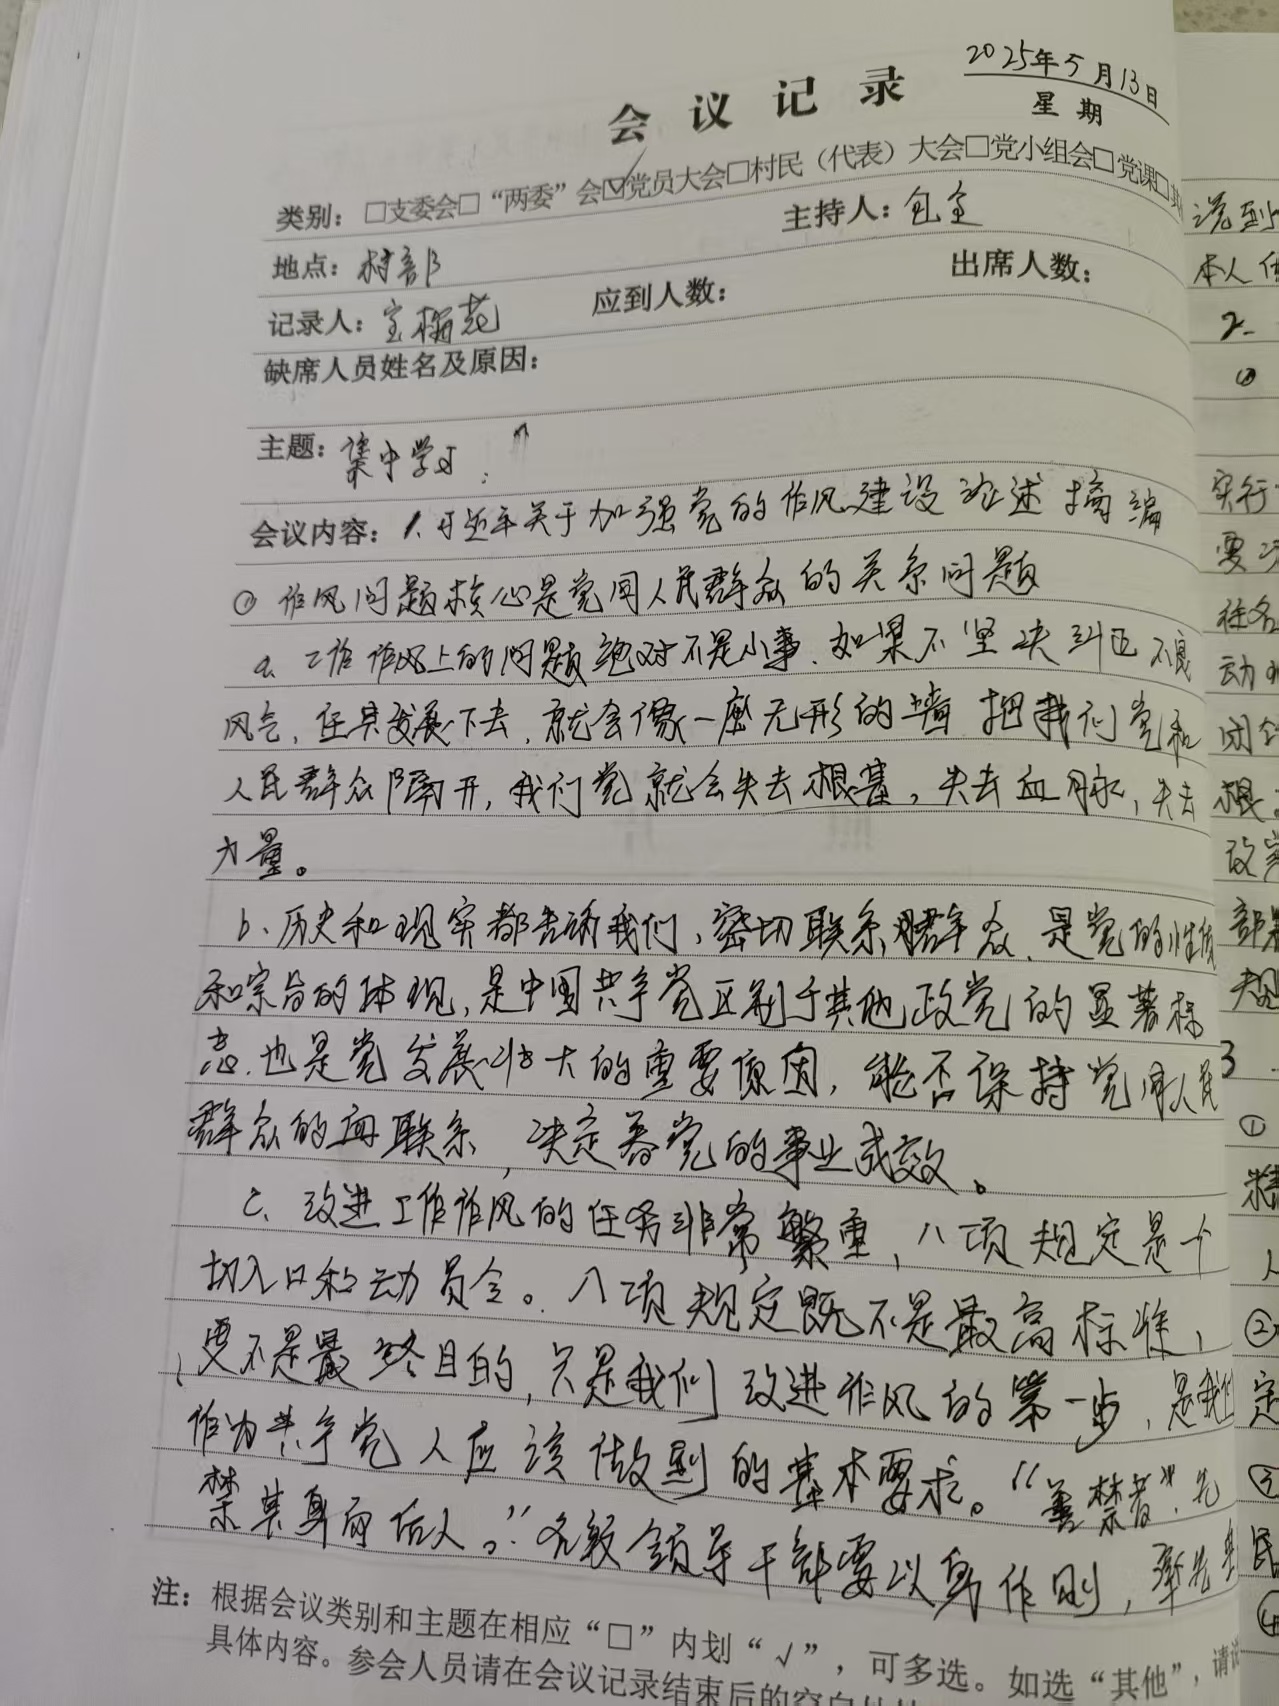 2025年5月13日
会议记录
星期
类别：□支委会□“两委”会☑党员大会□村民（代表）大会□党小组会□党课□其
地点：村部
主持人：包宝
记录人：宝梅花
应到人数：
出席人数：
缺席人员姓名及原因：
主题：集中学习
会议内容：1.习近平关于加强党的作风建设论述摘编
① 作风问题核心是党同人民群众的关系问题
a. 工作作风上的问题绝对不是小事、如果不坚决纠正不良
风气，任其发展下去，就会像一座无形的墙把我们党和
人民群众隔开，我们党就会失去根基，失去血脉，失去
力量。
b、历史和现实都告诉我们，密切联系群众、是党的性质
和宗旨的体现，是中国共产党区别于其他政党的显著标
志.也是党发展壮大的重要原因，能否保持党同人民
群众的血联系，决定着党的事业成效。
c、改进工作作风的任务非常繁重，八项规定是个
切入口和动员令。八项规定既不是最高标准，
更不是最终目的，只是我们改进作风的第一步，是我们
作为共产党人应该做到的基本要求。“善禁者”，先
禁其身而后人。”各级领导干部要以身作则，率先
注：根据会议类别和主题在相应“□”内划“√”，可多选。如选“其他”，请
具体内容。参会人员请在会议记录结束后的空白
说到
本人
2.
①
实行
要
往各
动
闭
根
改
部
规
3
①
精
人
②
定
③
民
④